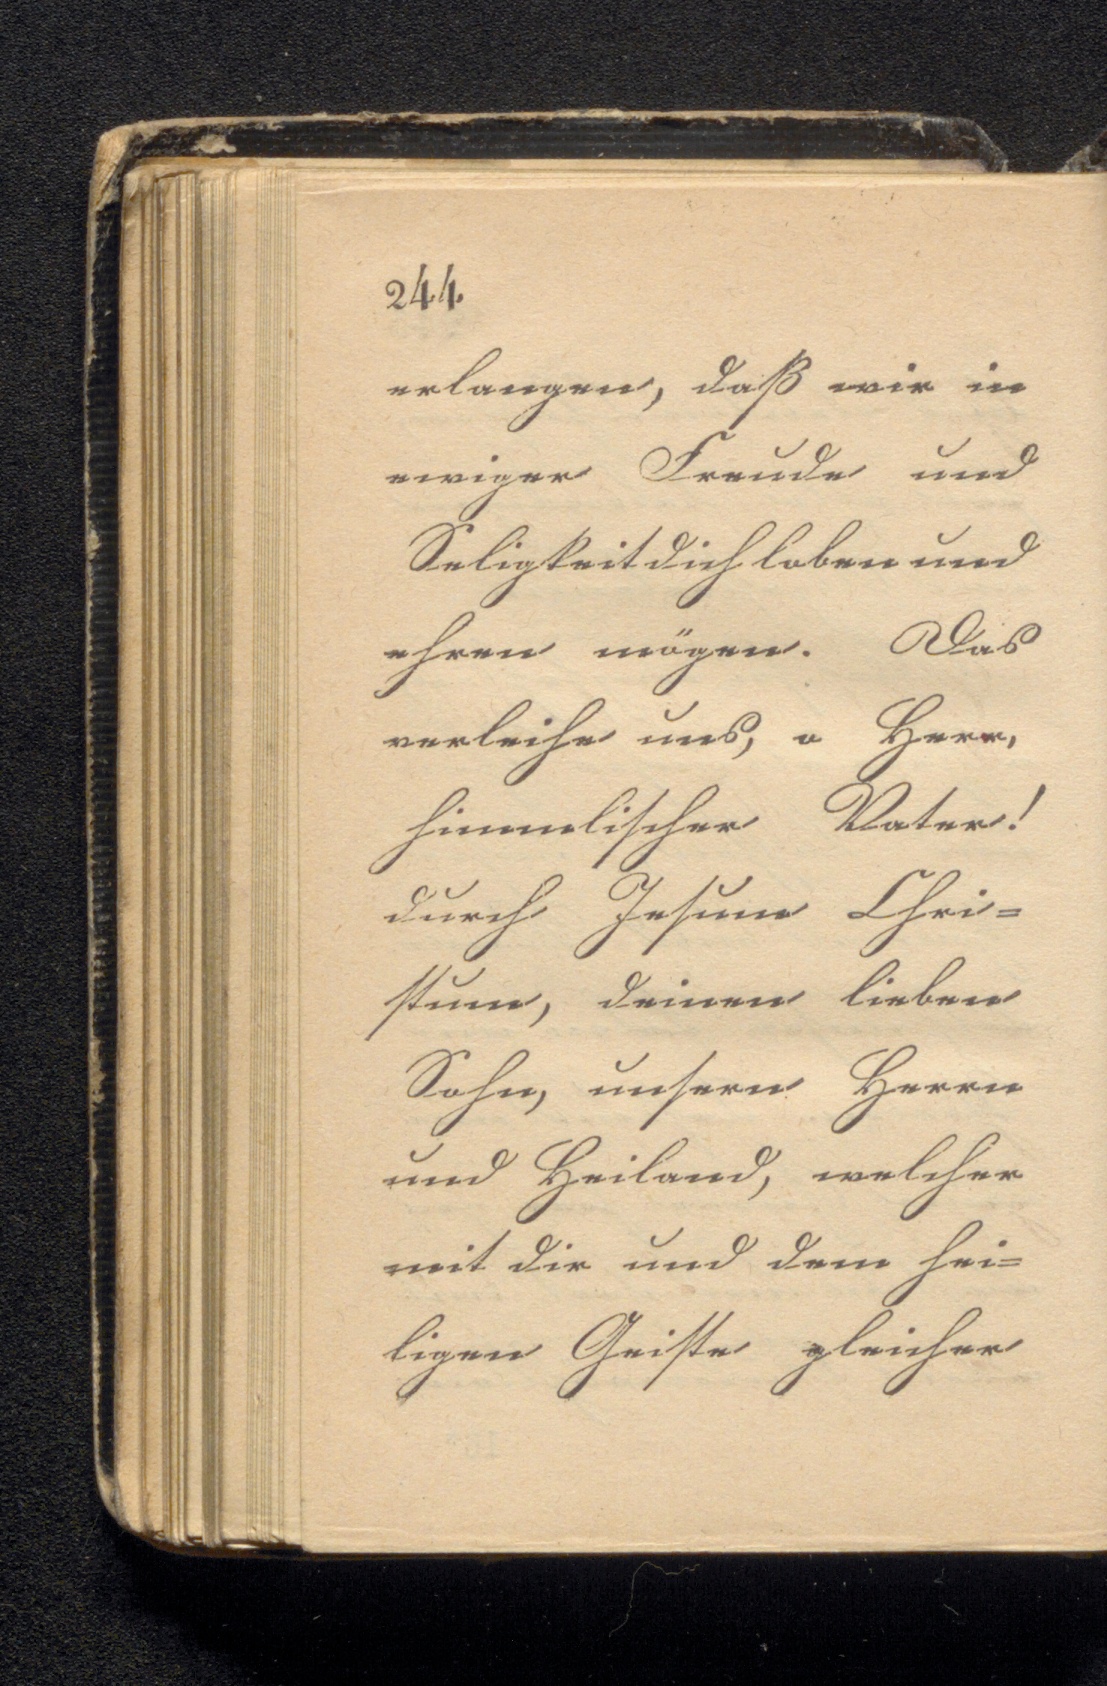 244.
erlangen, daß wir in
ewiger Freude und
Seligkeit dich loben und
ehren mögen. Das
verleihe uns, o Herr,
himmlischer Vater!
durch Jesum Chri=
stum, deinen lieben
Sohn, unsern Herrn
und Heiland, welcher
mit dir und dem hei=
ligen Geiste gleicher